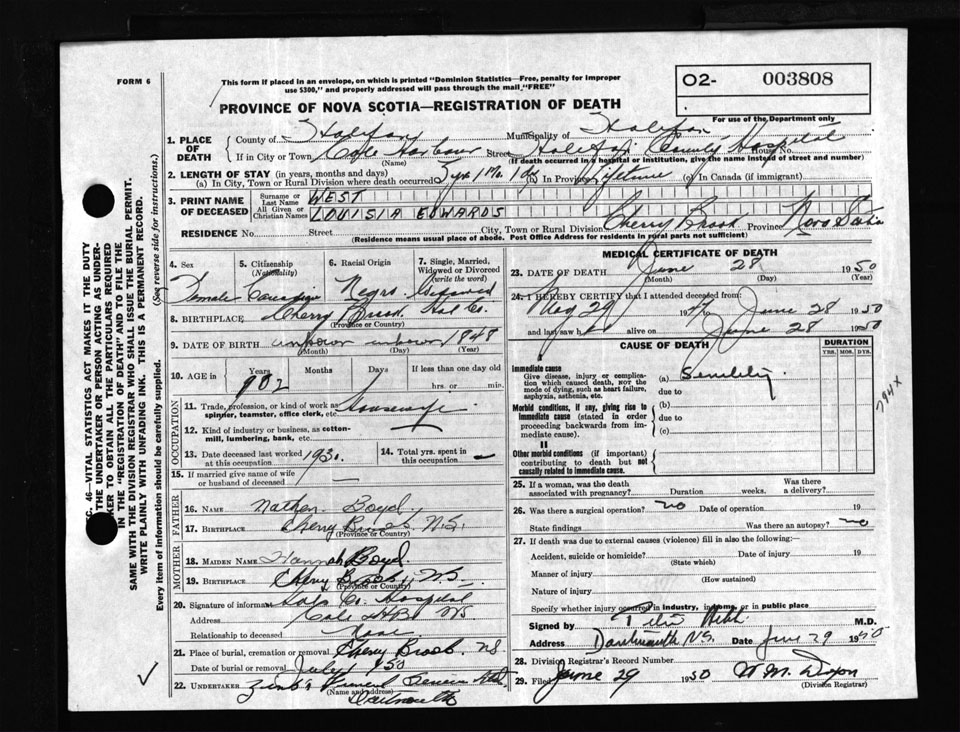 FORM 6
This form if placed in an envelope, on which is printed "Dominion Statistics—Free, penalty for improper
use $300," and properly addressed will pass through the mail "FREE"
O2- 003808
For use of the Department only
PROVINCE OF NOVA SCOTIA—REGISTRATION OF DEATH
1. PLACE OF DEATH
County of Halifax Municipality of Halifax
If in City or Town Cole Harbour Street Halifax County Hospital House No.
(Name) (If death occurred in a hospital or institution, give the name instead of street and number)
2. LENGTH OF STAY (in years, months and days)
(a) In City, Town or Rural Division where death occurred 3 yr 1 mo 1 d (b) In Province Lifetime (c) In Canada (if immigrant)
3. PRINT NAME OF DECEASED
Surname or Last Name WEST
All Given or Christian Names LOUISIA EDWARDS
RESIDENCE No. Street City, Town or Rural Division Cherry Brook Province Nova Scotia
(Residence means usual place of abode. Post Office Address for residents in rural parts not sufficient)
4. Sex
Female
5. Citizenship (Nationality)
Canadian
6. Racial Origin
Negro
7. Single, Married, Widowed or Divorced (write the word)
Widowed
8. BIRTHPLACE Cherry Brook Hal Co.
(Province or Country)
9. DATE OF BIRTH unknown unknown 1848
(Month) (Day) (Year)
10. AGE in Years Months Days If less than one day
102 hrs. or min.
OCCUPATION
11. Trade, profession, or kind of work as spinner, teamster, office clerk, etc. Housewife
12. Kind of industry or business, as cotton-mill, lumbering, bank, etc.
13. Date deceased last worked at this occupation 1930.
14. Total yrs. spent in this occupation —
15. If married give name of wife or husband of deceased —
FATHER
16. NAME Nathen Boyd
17. BIRTHPLACE Cherry Brook N.S.
(Province or Country)
MOTHER
18. MAIDEN NAME Hannah Boyd
19. BIRTHPLACE Cherry Brook, N.S.
(Province or Country)
20. Signature of informant Halifax Co. Hospital
Address Cole Hbr NS
Relationship to deceased None
21. Place of burial, cremation or removal Cherry Brook NS
Date of burial or removal July 1 50
22. UNDERTAKER Funeral Service
(Name and address) Dartmouth
MEDICAL CERTIFICATE OF DEATH
23. DATE OF DEATH June 28 1950
(Month) (Day) (Year)
24. I HEREBY CERTIFY that I attended deceased from:
May 29 1947 to June 28 1950
and last saw her alive on June 28 1950
CAUSE OF DEATH
DURATION
YRS. MOS. DYS.
I
Immediate cause
Give disease, injury or complication which caused death, not the mode of dying, such as heart failure, asphyxia, asthenia, etc.
(a) Senility
due to
Morbid conditions, if any, giving rise to immediate cause (stated in order proceeding backwards from immediate cause).
(b)
due to
(c)
II
Other morbid conditions (if important) contributing to death but not causally related to immediate cause.
794X
25. If a woman, was the death associated with pregnancy? Duration weeks. Was there a delivery?
26. Was there a surgical operation? no Date of operation 19
State findings Was there an autopsy? no
27. If death was due to external causes (violence) fill in also the following:—
Accident, suicide or homicide? Date of injury 19
(State which)
Manner of injury
(How sustained)
Nature of injury
Specify whether injury occurred in industry, in home, or in public place
Signed by M.D.
Address Dartmouth N.S. Date June 29 1950
28. Division Registrar's Record Number
29. Filed June 29 1950 W.M. Dixon
(Division Registrar)
SEC. 46—VITAL STATISTICS ACT MAKES IT THE DUTY
THE UNDERTAKER OR PERSON ACTING AS UNDER-
TAKER TO OBTAIN ALL THE PARTICULARS REQUIRED
IN THE "REGISTRATION OF DEATH" AND TO FILE THE
SAME WITH THE DIVISION REGISTRAR WHO SHALL ISSUE THE BURIAL PERMIT.
WRITE PLAINLY WITH UNFADING INK. THIS IS A PERMANENT RECORD.
Every item of information should be carefully supplied. (See reverse side for instructions.)